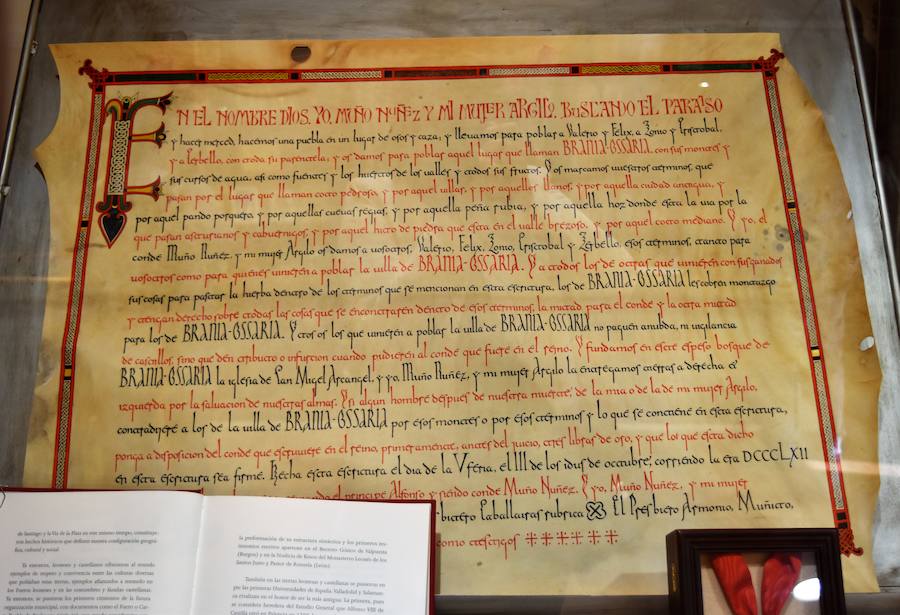 EN EL NOMBRE DIOS, YO, MUÑO NUÑEZ Y MI MUJER ARGILO, BUSCANDO EL PARAISO
y hacer merced, hacemos una puebla en un lugar de osos y caza, y llevamos para poblar a Valerio y Felix, a Zonio y Cristobal,
y a Cerbello, con toda su parentela, y os damos para poblar aquel lugar que llaman BRANIA-OSSARIA, con sus montes y
sus cursos de agua, así como fuentes y los huertos de los valles y todos sus frutos. Y os marcamos vuestros términos, que
pasan por el lugar que llaman cotto pedroso, y por aquel vallar, y por aquellos llanos, y por aquella ciudad antigua, y
por aquel pando porquera y por aquellas cuevas regias, y por aquella peña rubia, y por aquella hoz donde está la vía por la
que pasan asturianos y cabuernigos, y por aquel hito de piedra que esta en el valle brezoso, y por aquel coto mediano. Y yo, el
conde Muño Nuñez, y mi mujer Argilo os damos a vosotros, Valerio, Felix, Zonio, Cristobal y Zerbello, esos términos, tanto para
vosotros como para quienes vinieren a poblar la villa de BRANIA-OSSARIA. Y a todos los de otras que vinieren con sus ganados
sus cosas para pastar la hierba dentro de los términos que se mencionan en esta escritura, los de BRANIA-OSSARIA les cobren montazgo
y tengan derecho sobre todas las cosas que se encontraren dentro de esos términos, la mitad para el conde y la otra mitad
para los de BRANIA-OSSARIA. Y otros los que vinieren a poblar la villa de BRANIA-OSSARIA no paguen anubda, ni vigilancia
de castillos, sino que den tributo o infurcion cuando pudieren al conde que fuere en el reino. Y fundamos en este espeso bosque de
BRANIA-OSSARIA la iglesia de San Migel Arcangel, y yo, Muño Nuñez, y mi mujer Argilo la entregamos tierras a derecha e
izquierda por la salvación de nuestras almas. Y si algun hombre después de nuestra muerte, de la mia o de la de mi mujer Argilo,
contradijere a los de la villa de BRANIA-OSSARIA por esos montes o por esos términos y lo que se contiene en esta escritura,
ponga a disposicion del conde que estuviere en el reino, primeramente, antes del juicio, tres libras de oro, y que lo que esta dicho
en esta escritura sea firme. Hecha esta escritura el dia de la V feria, el III de los idus de octubre, corriendo la era DCCCLXII
el príncipe Alfonso y siendo conde Muño Nuñez. Yo, Muño Nuñez, y mi mujer
Caballarias rubrica El Presbitero Armonio, Muñito,
como testigos
de Santiago y la Vía de la Plata en ese mismo tiempo, constituyen
hechos históricos que definen nuestra configuración geográfica,
cultural y social
la preformación de su estructura sintáctica y los primeros
aparecen en el Becerro Gótico de Valpuesta
(Burgos) y en la Nodicia de Kesos del Monasterio Leonés de los
Santos Justo y Pastor de Rozuela (León).
También en las tierras leonesas y castellanas se pusieron en
las primeras Universidades de España, Valladolid y